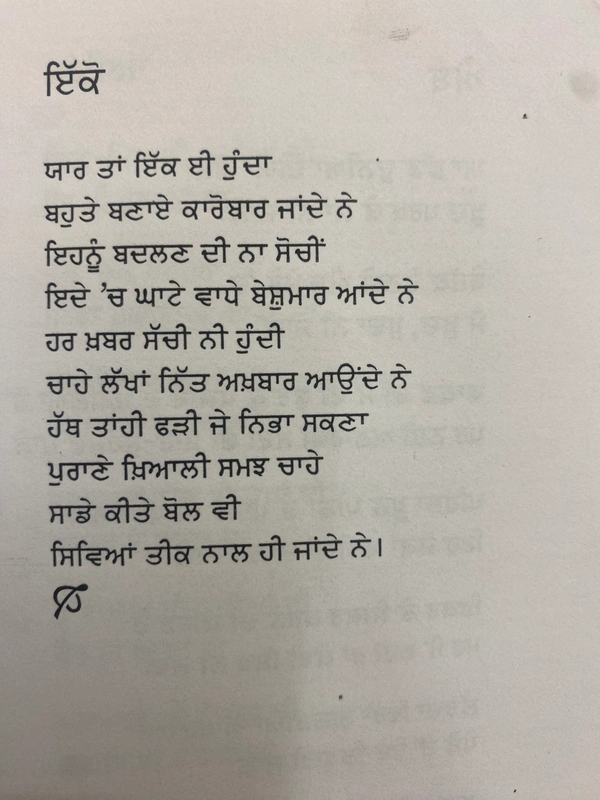 ਇੱਕੋ
ਯਾਰ ਤਾਂ ਇੱਕ ਈ ਹੁੰਦਾ
ਬਹੁਤੇ ਬਣਾਏ ਕਾਰੋਬਾਰ ਜਾਂਦੇ ਨੇ
ਇਹਨੂੰ ਬਦਲਣ ਦੀ ਨਾ ਸੋਚੀਂ
ਇਦੇ ’ਚ ਘਾਟੇ ਵਾਧੇ ਬੇਸ਼ੁਮਾਰ ਆਂਦੇ ਨੇ
ਹਰ ਖ਼ਬਰ ਸੱਚੀ ਨੀ ਹੁੰਦੀ
ਚਾਹੇ ਲੱਖਾਂ ਨਿੱਤ ਅਖ਼ਬਾਰ ਆਉਂਦੇ ਨੇ
ਹੱਥ ਤਾਂਹੀ ਫੜੀ ਜੇ ਨਿਭਾ ਸਕਣਾ
ਪੁਰਾਣੇ ਖ਼ਿਆਲੀ ਸਮਝ ਚਾਹੇ
ਸਾਡੇ ਕੀਤੇ ਬੋਲ ਵੀ
ਸਿਵਿਆਂ ਤੀਕ ਨਾਲ ਹੀ ਜਾਂਦੇ ਨੇ।